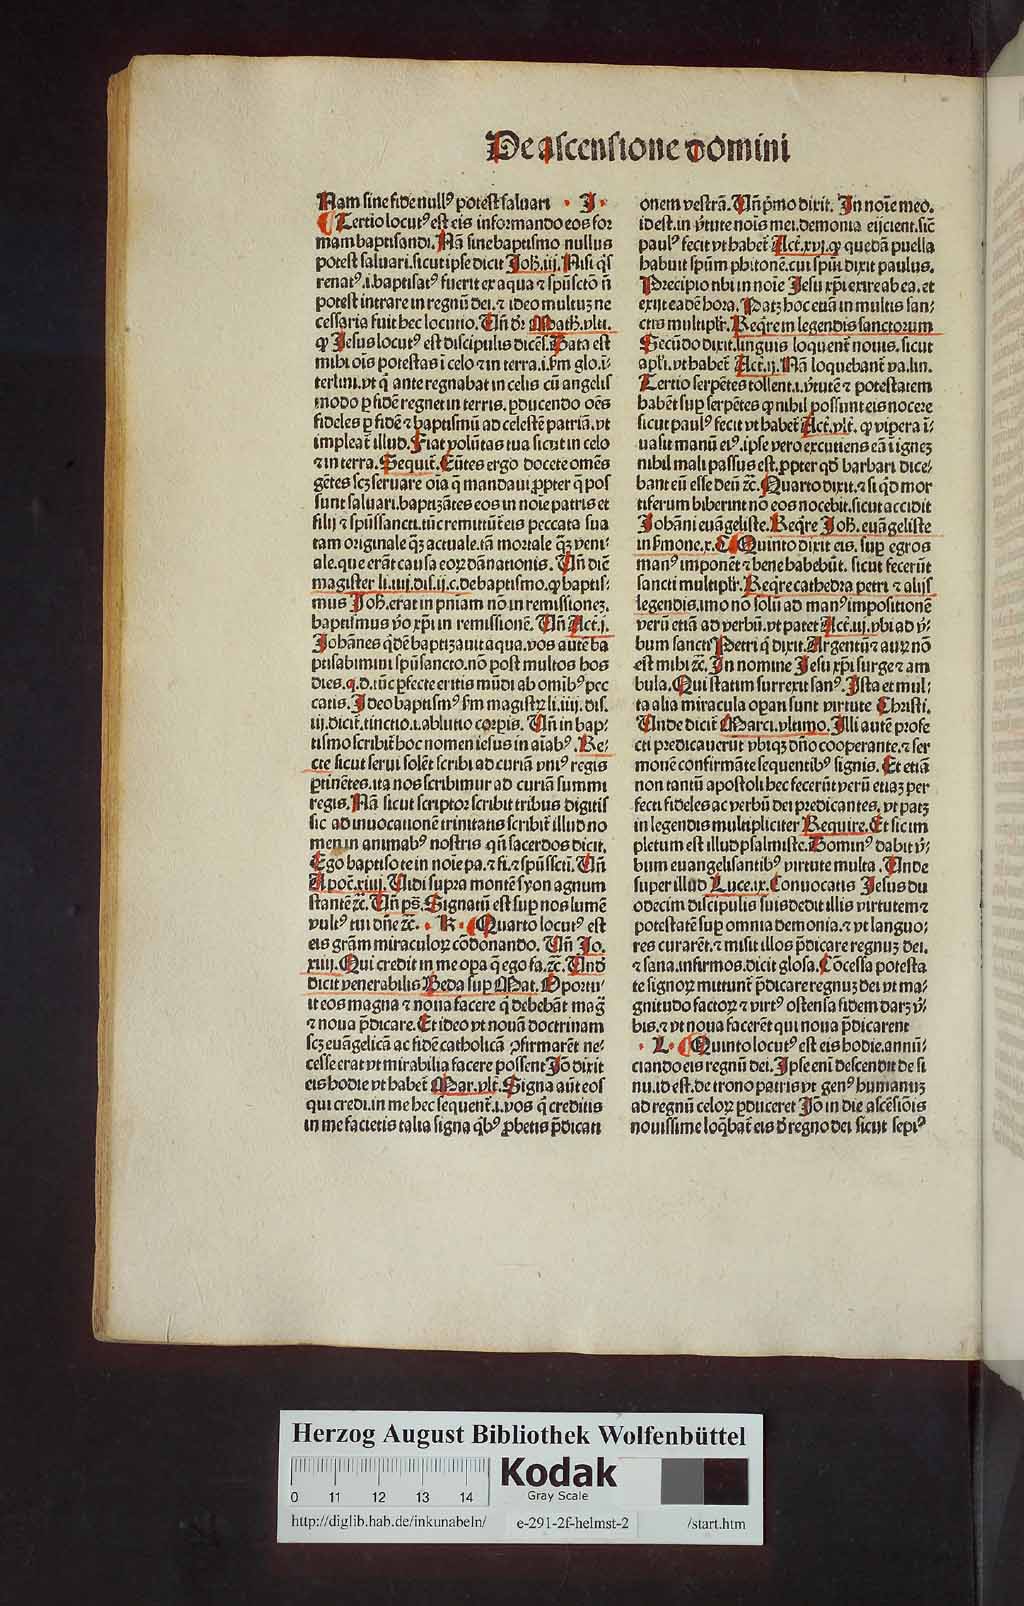 De ascensione domini
Nam sine fide nullꝰ potest saluari · I ·
Tertio locutꝰ est eis informando eos for
mam baptisandi. Nā sine baptismo nullus
potest saluari. sicut ipse dicit Joh̄. iij. Nisi q̄s
renatꝰ .i. baptisatꝰ fuerit ex aqua ⁊ spūscto n̄
potest intrare in regnū dei. ⁊ ideo multuꝫ ne
cessaria fuit hec locutio. Vn̄ dr̄ Math̄. vlti.
ꝙ Jesus locutꝰ est discipulis dicēs. Data est
mihi oīs potestas ī celo ⁊ in terra .i. ẜm glo. ī⸗
terlini. vt q̄ ante regnabat in celis cū angelis
modo ꝑ fidē regnet in terris. ꝓducendo oēs
fideles ꝑ fidē ⁊ baptismū ad celestē patriā. vt
impleat̄ illud. Fiat volūtas tua sicut in celo
⁊ in terra. Sequit̄. Eūtes ergo docete omēs
gētes scꝫ seruare oīa q̄ mandaui ꝓpter q̄ pos
sunt saluari. baptizātes eos in noīe patris et
filij ⁊ spūssancti. tūc remittūt̄ eis peccata sua
tam originale q̄ꝫ actuale. tā mortale q̄ꝫ veni⸗
ale. que erāt causa eoꝝ dānationis. Vn̄ diē
magister li. iiij. dis. ij. c. de baptismo. ꝙ baptis⸗
mus Joh̄. erat in pniam nō in remissioneꝫ.
baptismus ṽo xp̄i in remissionē. Vn̄ Act̄. j.
Johānes q̄dē baptizauit aqua. vos autē ba
ptisabimini spū sancto. nō post multos hos
dies. q. d. tūc ꝑfecte eritis mūdi ab omībꝰ pec
catis. Ideo baptismꝰ ẜm magistꝝ li. iiij. dis.
iij. dicit̄. tinctio .i. ablutio corꝑis. Vn̄ in bap⸗
tismo scribit̄ hoc nomen iesus in aīabꝰ. Re⸗
cte sicut serui solēt scribi ad curiā vniꝰ regis
ꝑtinētes. ita nos scribimur ad curiā summi
regis. Nā sicut scriptor scribit tribus digitis
sic ad inuocationē trinitatis scribit̄ illud no
men in animabꝰ nostris qn̄ sacerdos dicit.
Ego baptiso te in noīe pa. ⁊ fi. ⁊ spūsscti. Vn̄
Apoc̄. xiiij. Vidi supra montē syon agnum
stantē ⁊c̄. Vn̄ ps̄. Signatū est suꝑ nos lumē
vultꝰ tui dn̄e ⁊c̄. · K · Quarto locutꝰ est
eis gr̄am miraculoꝝ cōdonando. Vn̄ Jo.
xiiij. Qui credit in me oꝑa q̄ ego fa. ⁊c̄. Vnd̄
dicit venerabilis Beda suꝑ Mat. Oportu⸗
it eos magna ⁊ noua facere q̄ debebāt mag̃
⁊ noua p̄dicare. Et ideo vt nouā doctrinam
scꝫ euāgelicā ac fidē catholicā ꝯfirmarēt ne⸗
cesse erat vt mirabilia facere possent Iō dixit
eis hodie vt habet̄ Mar. vlt̄. Signa aūt eos
qui credi. in me hec sequent̄ .i. vos q̄ creditis
in me facietis talia signa q̄bꝰ ꝓbetis p̄dicati
onem vestrā. Vn̄ p̄mo dixit. In noīe meo.
id est. in ṽtute noīs mei. demonia eijcient. sic̄
paulꝰ fecit vt habet̄ Act̄. xvj. ꝙ quedā puella
habuit spūm phitonē. cui spūi dixit paulus.
Precipio tibi in noīe Jesu xp̄i exire ab ea. et
exijt eadē hora. Patꝫ hoc etiā in multis san⸗
ctis multiplr̄. Reqr̄e in legendis sanctorum
Secūdo dixit. linguis loquent̄ nouis. sicut
apl̄i. vt habet̄ Act̄. ij. Nā loquebant̄ va. lin.
Tertio serpētes tollent .i. ṽtutē ⁊ potestatem
habēt suꝑ serpētes ꝙ nihil possunt eis nocere
sicut paulꝰ fecit vt habet̄ Act̄. vlt̄. ꝙ vipera ī⸗
uasit manū eiꝰ. ipse vero excutiens eā ī igneꝫ
nihil mali passus est. ꝓpter qd̄ barbari dice⸗
bant eū esse deū ⁊c̄. Quarto dixit. ⁊ si qd̄ mor
tiferum biberint nō eos nocebit. sicut accidit
Johāni euāgeliste. Reqr̄e Joh̄. euāgeliste
in ẜmone. x. C Quinto dixit eis. suꝑ egros
manꝰ imponēt ⁊ bene habebūt. sicut fecerūt
sancti multiplr̄. Reqr̄e cathedra petri ⁊ alijs
legendis. imo nō solū ad manꝰ impositionē
verū etiā ad verbū. vt patet Act̄. iij. vbi ad ṽ⸗
bum sancti Petri q̄ dixit. Argentū ⁊ auꝝ nō
est mihi ⁊c̄. In nomine Jesu xp̄i surge ⁊ am
bula. Qui statim surrexit sanꝰ. Ista et mul⸗
ta alia miracula oꝑati sunt virtute Christi.
Vnde dicit̄ Marci. vltimo. Illi autē profe
cti predicauerūt vbiqꝫ dn̄o cooperante. ⁊ ser
monē confirmāte sequentibꝰ signis. Et etiā
non tantū apostoli hec fecerūt verū etiaꝫ per
fecti fideles ac verbū dei predicantes. vt patꝫ
in legendis multipliciter Require. Et sic im
pletum est illud psalmiste. Dominꝰ dabit ṽ⸗
bum euangelisantibꝰ virtute multa. Vnde
super illud Luce. ix. Conuocatis Jesus du
odecim discipulis suis dedit illis virtutem ⁊
potestatē suꝑ omnia demonia. ⁊ vt languo⸗
res curarēt. ⁊ misit illos p̄dicare regnuꝫ dei.
⁊ sana. infirmos. dicit glosa. Cōcessa potesta
te signoꝝ mittunt̄ p̄dicare regnuꝫ dei vt ma⸗
gnitudo factoꝝ ⁊ virtꝰ ostensa fidem darꝫ ṽ⸗
bis. ⁊ vt noua facerēt qui noua p̄dicarent
· L · Quinto locutꝰ est eis hodie. annū⸗
ciando eis regnū dei. Ipse enī descendit de si
nu. id est. de trono patris vt genꝰ humanuꝫ
ad regnū celoꝝ ꝓduceret Iō in die ascēsiōis
nouissime loq̄bat̄ eis d̄ regno dei sicut sepiꝰ
Herzog August Bibliothek Wolfenbüttel
Kodak
Gray Scale
0 11 12 13 14
http://diglib.hab.de/inkunabeln/ e-291-2f-helmst-2 /start.htm